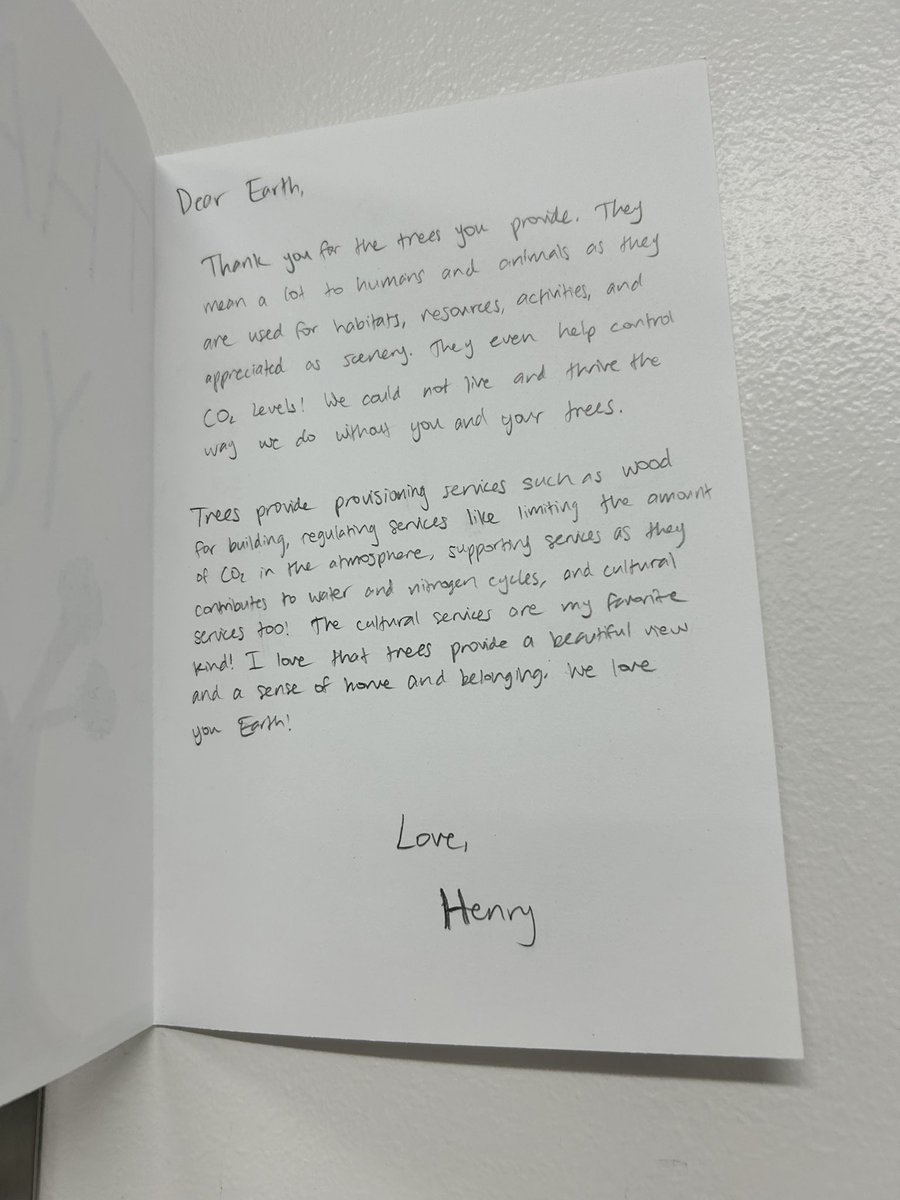 Dear Earth,
Thank you for the trees you provide. They
mean a lot to humans and animals as they
are used for habitats, resources, activities, and
appreciated as scenery. They even help control
CO₂ levels! We could not live and thrive the
way we do without you and your trees.
Trees provide provisioning services such as wood
for building, regulating services like limiting the amount
of CO₂ in the atmosphere, supporting services as they
contributes to water and nitrogen cycles, and cultural
services too! The cultural services are my favorite
kind! I love that trees provide a beautiful view
and a sense of home and belonging. We love
you Earth!
Love,
Henry